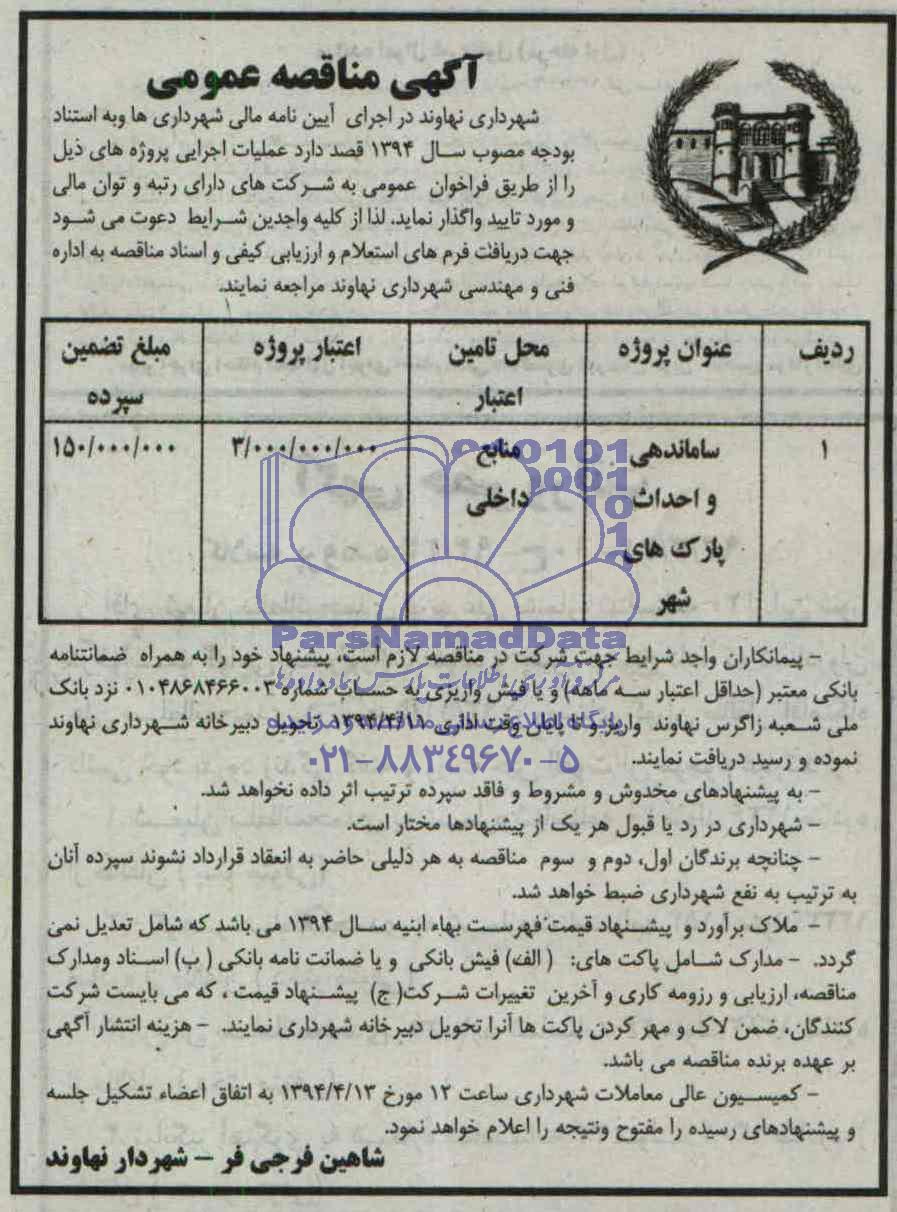 آگهی مناقصه عمومی
شهرداری نهاوند در اجرای آیین نامه مالی شهرداری ها وبه استناد
بودجه مصوب سال ۱۳۹۴ قصد دارد عملیات اجرایی پروژه های ذیل
را از طریق فراخوان عمومی به شرکت های دارای رتبه و توان مالی
و مورد تایید واگذار نماید. لذا از کلیه واجدین شرایط دعوت می شود
جهت دریافت فرم های استعلام و ارزیابی کیفی و اسناد مناقصه به اداره
فنی و مهندسی شهرداری نهاوند مراجعه نمایند.
ردیف عنوان پروژه محل تامین اعتبار پروژه مبلغ تضمین
اعتبار سپرده
۱ ساماندهی منابع ۳/۰۰۰/۰۰۰/۰۰۰ ۱۵۰/۰۰۰/۰۰۰
و احداث داخلی
پارک های
شهر
ParsNamadData
– پیمانکاران واجد شرایط جهت شرکت در مناقصه لازم است، پیشنهاد خود را به همراه ضمانتنامه
بانکی معتبر (حداقل اعتبار سه ماهه) و یا فیش واریزی به حساب شماره ۰۱۰۴۸۶۸۴۶۶۰۰۳ نزد بانک
ملی شعبه زاگرس نهاوند واریز و تا پایان وقت اداری ۱۳۹۴/۴/۱۱ تحویل دبیرخانه شهرداری نهاوند
نموده و رسید دریافت نمایند.
۰۲۱-۸۸۳۴۹۶۷۰-۵
– به پیشنهادهای مخدوش و مشروط و فاقد سپرده ترتیب اثر داده نخواهد شد.
– شهرداری در رد یا قبول هر یک از پیشنهادها مختار است.
– چنانچه برندگان اول، دوم و سوم مناقصه به هر دلیلی حاضر به انعقاد قرارداد نشوند سپرده آنان
به ترتیب به نفع شهرداری ضبط خواهد شد.
– ملاک برآورد و پیشنهاد قیمت فهرست بهاء ابنیه سال ۱۳۹۴ می باشد که شامل تعدیل نمی
گردد. – مدارک شامل پاکت های: (الف) فیش بانکی و یا ضمانت نامه بانکی (ب) اسناد ومدارک
مناقصه، ارزیابی و رزومه کاری و آخرین تغییرات شرکت(ج) پیشنهاد قیمت ، که می بایست شرکت
کنندگان، ضمن لاک و مهر کردن پاکت ها آنرا تحویل دبیرخانه شهرداری نمایند. – هزینه انتشار آگهی
بر عهده برنده مناقصه می باشد.
– کمیسیون عالی معاملات شهرداری ساعت ۱۲ مورخ ۱۳۹۴/۴/۱۳ به اتفاق اعضاء تشکیل جلسه
و پیشنهادهای رسیده را مفتوح ونتیجه را اعلام خواهد نمود.
شاهین فرجی فر – شهردار نهاوند